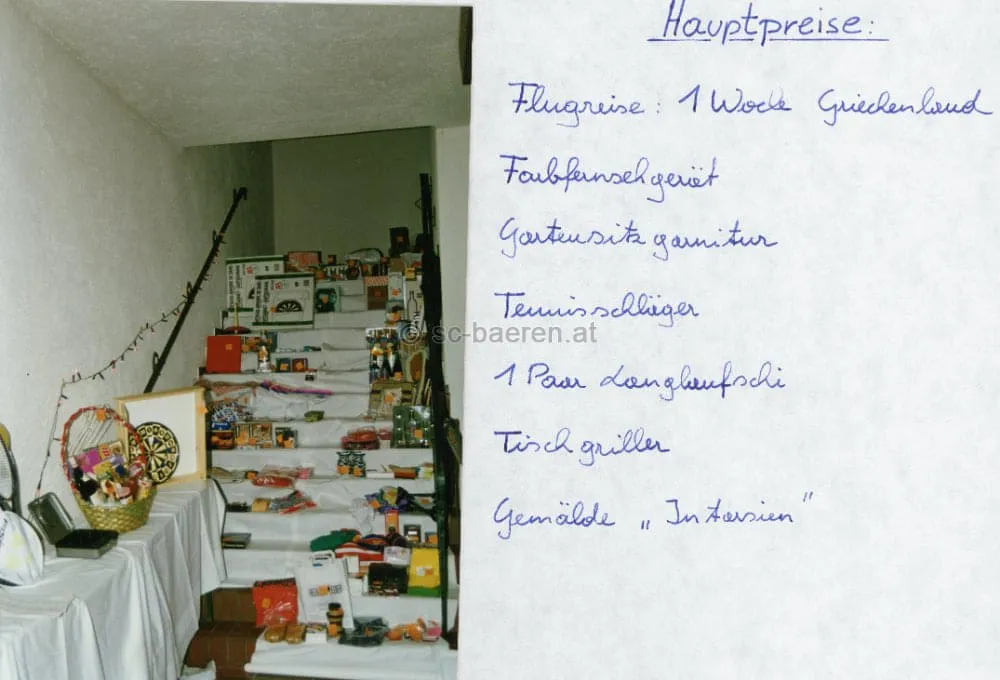 Hauptpreise:
Flugreise: 1 Woche Griechenland
Farbfernsehgerät
Gartensitzgarnitur
© sc-baeren.at
Tennisschläger
1 Paar Langlaufschi
Tischgriller
Gemälde „Intarsien"